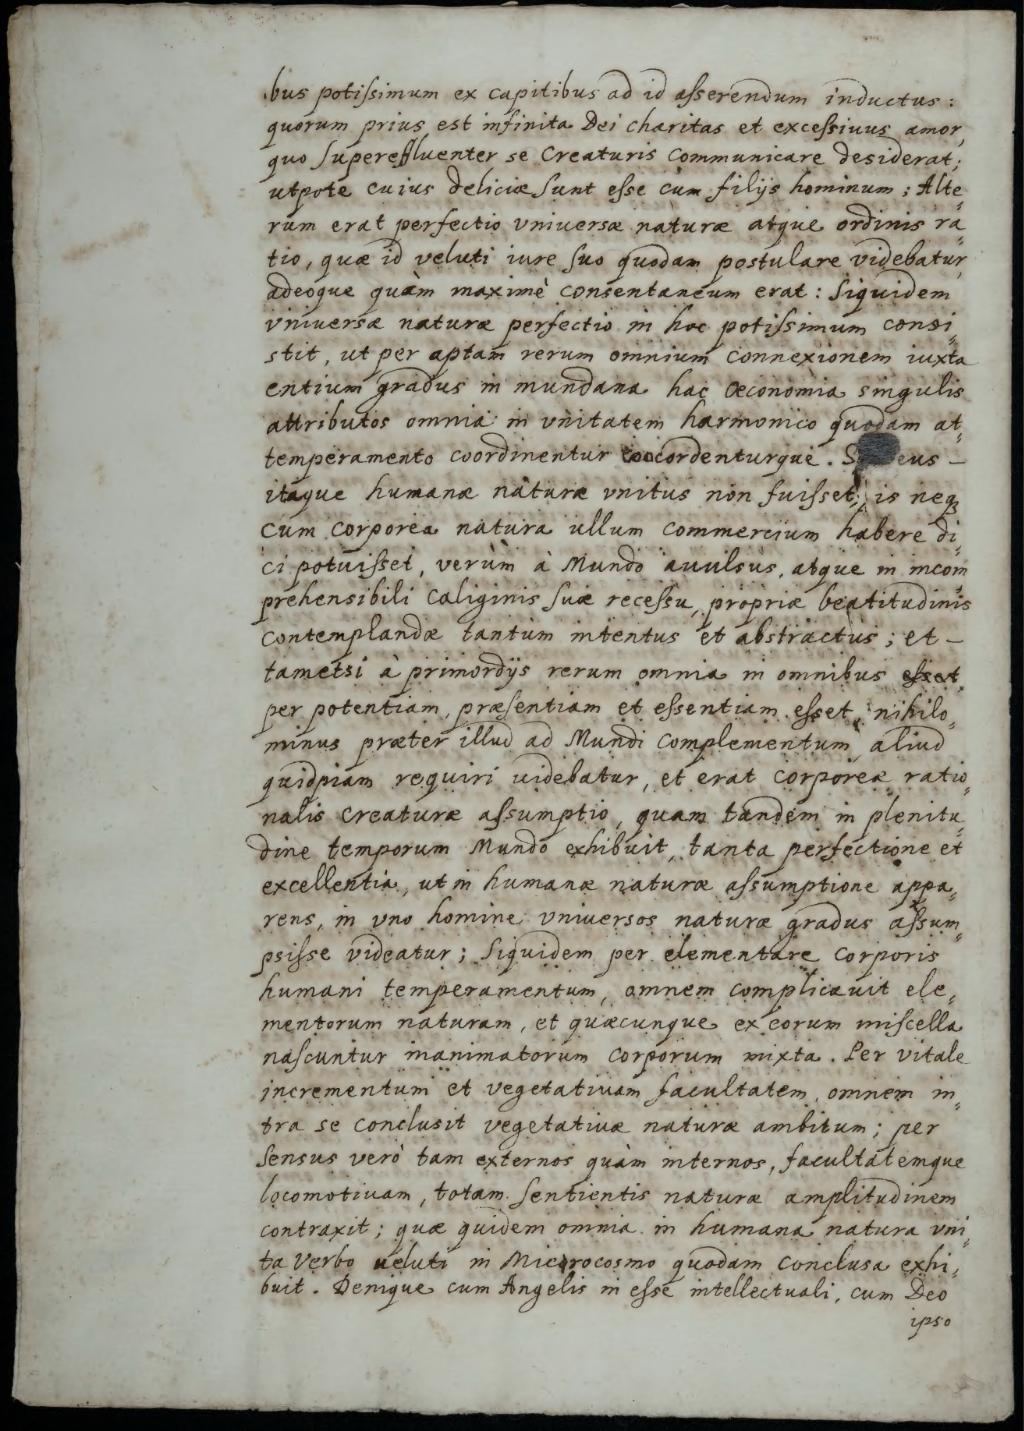 bus potissimum ex capitibus ad id asserendum inductus:
quorum prius est infinita Dei charitas et excessiuus amor,
quo supereffluenter se Creaturis Communicare desiderat;
utpote cuius deliciæ sunt esse cùm filijs hominum; Alte-
rum erat perfectio vniuersæ naturæ atque ordinis ra-
tio, quæ id veluti iure suo quodam postulare videbatur,
adeoque quàm maximè consentaneum erat: Siquidem
vniuersæ naturæ perfectio in hoc potissimum consi-
stit, ut per aptam rerum omnium connexionem iuxta
entium gradus in mundana hac œconomia singulis
attributos omnia in vnitatem harmonico quodam at-
temperamento coordinentur concordenturque. S eus –
itaque humanæ naturæ vnitus non fuisset, is neq
cum corporea natura ullum commercium habere di-
ci potuisset, verùm à Mundo auulsus, atque in incom
prehensibili Caliginis suæ recessu, propriæ beatitudinis
contemplandæ tantùm intentus et abstractus; et –
tametsi à primordijs rerum omnia in omnibus esset
per potentiam, præsentiam et essentiam esset, nihilo-
minus præter illud ad Mundi Complementum aliud
quidpiam requiri uidebatur, et erat corporeæ ratio-
nalis Creaturæ assumptio, quam tandem in plenitu-
dine temporum Mundo exhibuit, tanta perfectione et
excellentia, ut in humanæ naturæ assumptione appa-
rens, in vno homine vniuersos naturæ gradus assum-
psisse videatur; Siquidem per elementare corporis
humani temperamentum, omnem complicauit ele-
mentorum naturam, et quæcunque ex eorum miscella
nascuntur inanimatorum corporum mixta. Per vitale
incrementum et vegetatiuam facultatem, omnem in-
tra se conclusit vegetatiuæ naturæ ambitum; per
sensus verò tam externos quàm internos, facultatemque
locomotiuam, totam sentientis naturæ amplitudinem
contraxit; quæ quidem omnia in humana natura vni-
ta Verbo ueluti in Microcosmo quodam conclusa exhi-
buit. Denique cum Angelis in esse intellectuali, cum Deo
ipso